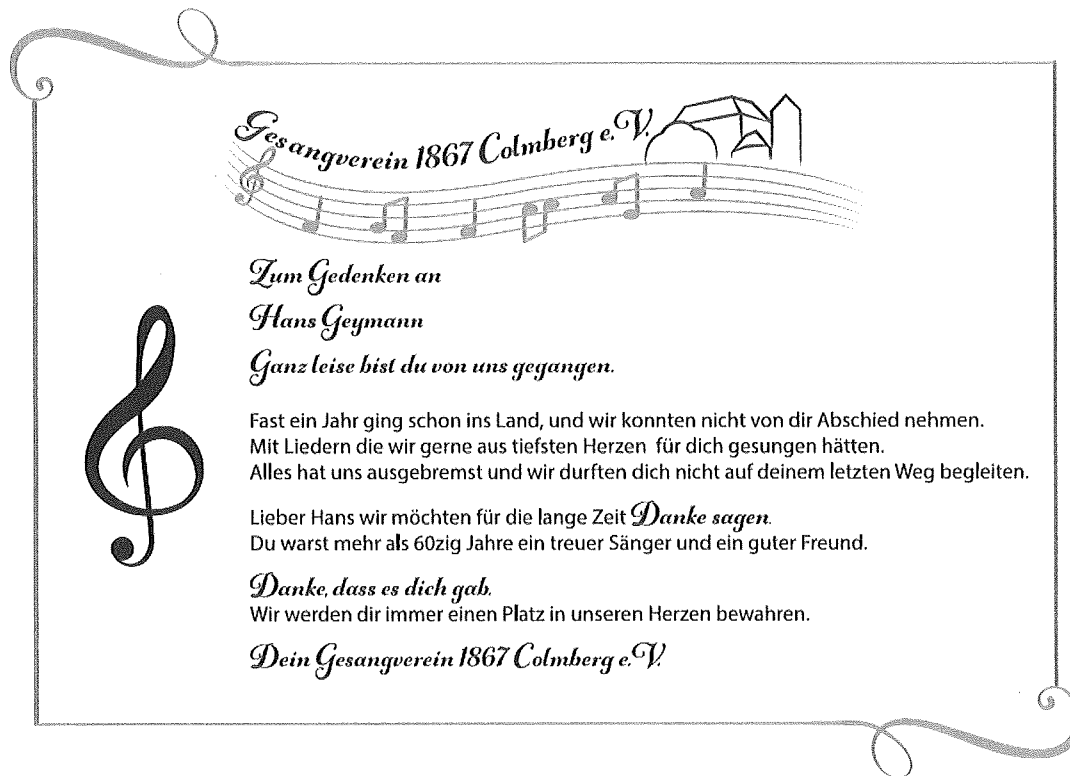 Gesangverein 1867 Colmberg e.V.
Zum Gedenken an
Hans Geymann
Ganz leise bist du von uns gegangen.
Fast ein Jahr ging schon ins Land, und wir konnten nicht von dir Abschied nehmen.
Mit Liedern die wir gerne aus tiefsten Herzen für dich gesungen hätten.
Alles hat uns ausgebremst und wir durften dich nicht auf deinem letzten Weg begleiten.
Lieber Hans wir möchten für die lange Zeit Danke sagen.
Du warst mehr als 60zig Jahre ein treuer Sänger und ein guter Freund.
Danke, dass es dich gab.
Wir werden dir immer einen Platz in unseren Herzen bewahren.
Dein Gesangverein 1867 Colmberg e.V.